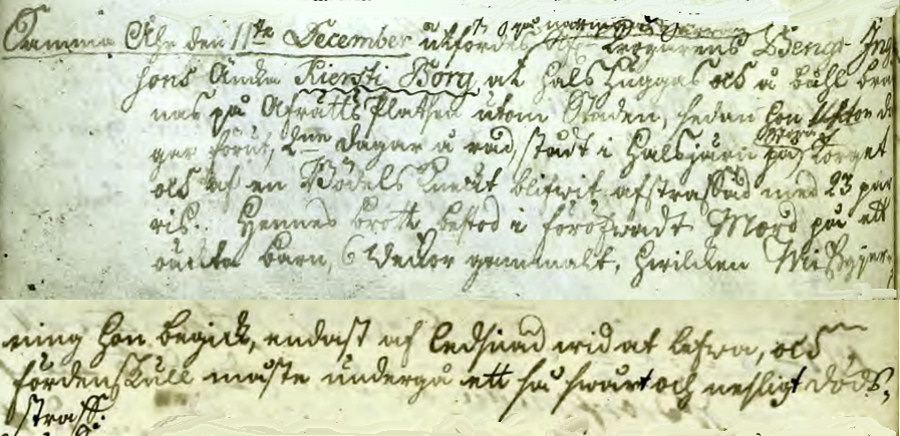 Samma Åhr den 11te December utfördes Krögarens Beng- Ing
sons Änka Kiersti Borg at halshuggas och å båhl brä
nas på Afrätts Platsen utom Staden, sedan hon da
gar förut, 2ne dagar å rad, stådt i Halsjärn på torget
och af en Bödels Knecht blifwit afstraffad med 23 par
ris. Hennes brott bestod i föröfwadt Mord på ett
oächta barn, 6 Weckor gammalt, hwilken Mißgjer-
ning hon begick, endast af ledsnad wid at lefwa, och
fördenskull måste undergå ett så swårt och neßligt döds-
straff.